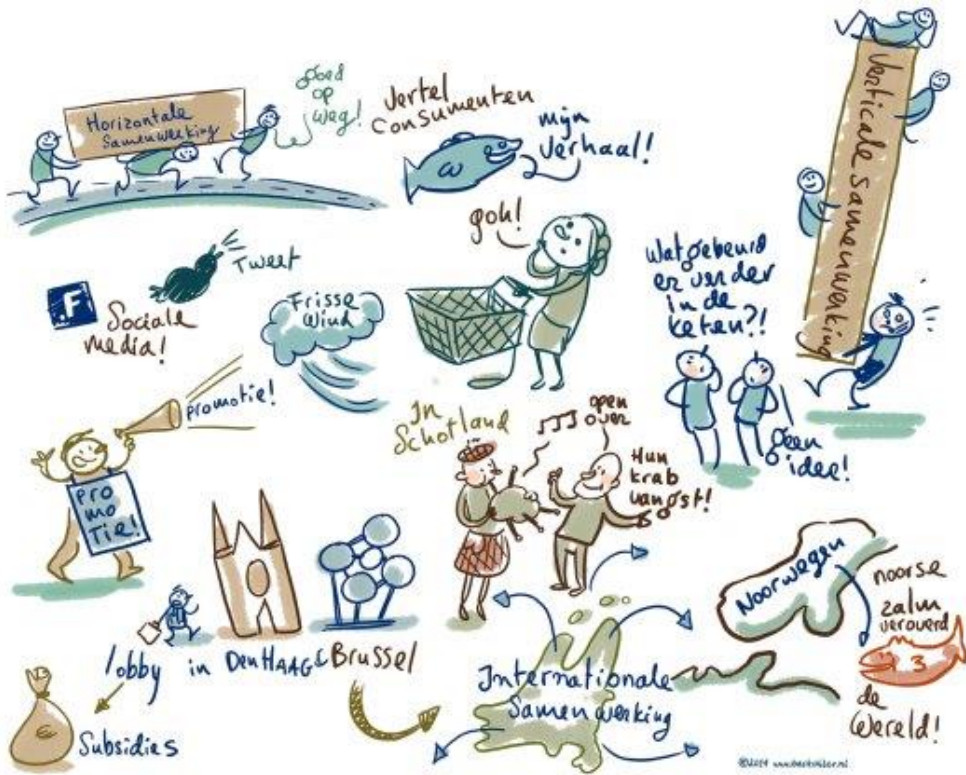 Horizontale
Samenwerking
goed
op
weg!
Vertel
consumenten
mijn
verhaal!
Verticale samenwerking
goh!
Tweet
F
Sociale
media!
Frisse
Wind
Wat gebeurd
er verder
in de
keten?!
geen
idee!
promotie!
Pro
mo
tie!
In
Schotland
open
over
Hun
krab
vangst!
lobby in Den HAAG & Brussel
Subsidies
€
Internationale
Samenwerking
Noorwegen
noorse
zalm
veroverd
3
de
Wereld!